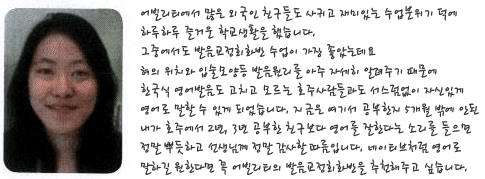 어빌리티에서 많은 외국인 친구들도 사귀고 재미있는 수업분위기 덕에
하루하루 즐거운 학교생활을 했습니다.
그중에서도 발음교정회화반 수업이 가장 좋았는데요
혀의 위치와 입술모양등 발음원리를 아주 자세히 알려주기 때문에
한국식 영어발음도 고치고 모르는 호주사람들과도 서스럼없이 자신있게
영어로 말할 수 있게 되었습니다. 지금은 여기서 공부한지 5개월 밖에 안된
내가 호주에서 2년, 3년 공부한 친구보다 영어를 잘한다는 소리를 들으면
정말 뿌듯하고 선생님께 정말 감사할 따름입니다. 네이티브처럼 영어로
말하길 원한다면 꼭 어빌리티의 발음교정회화반을 추천해주고 싶습니다.